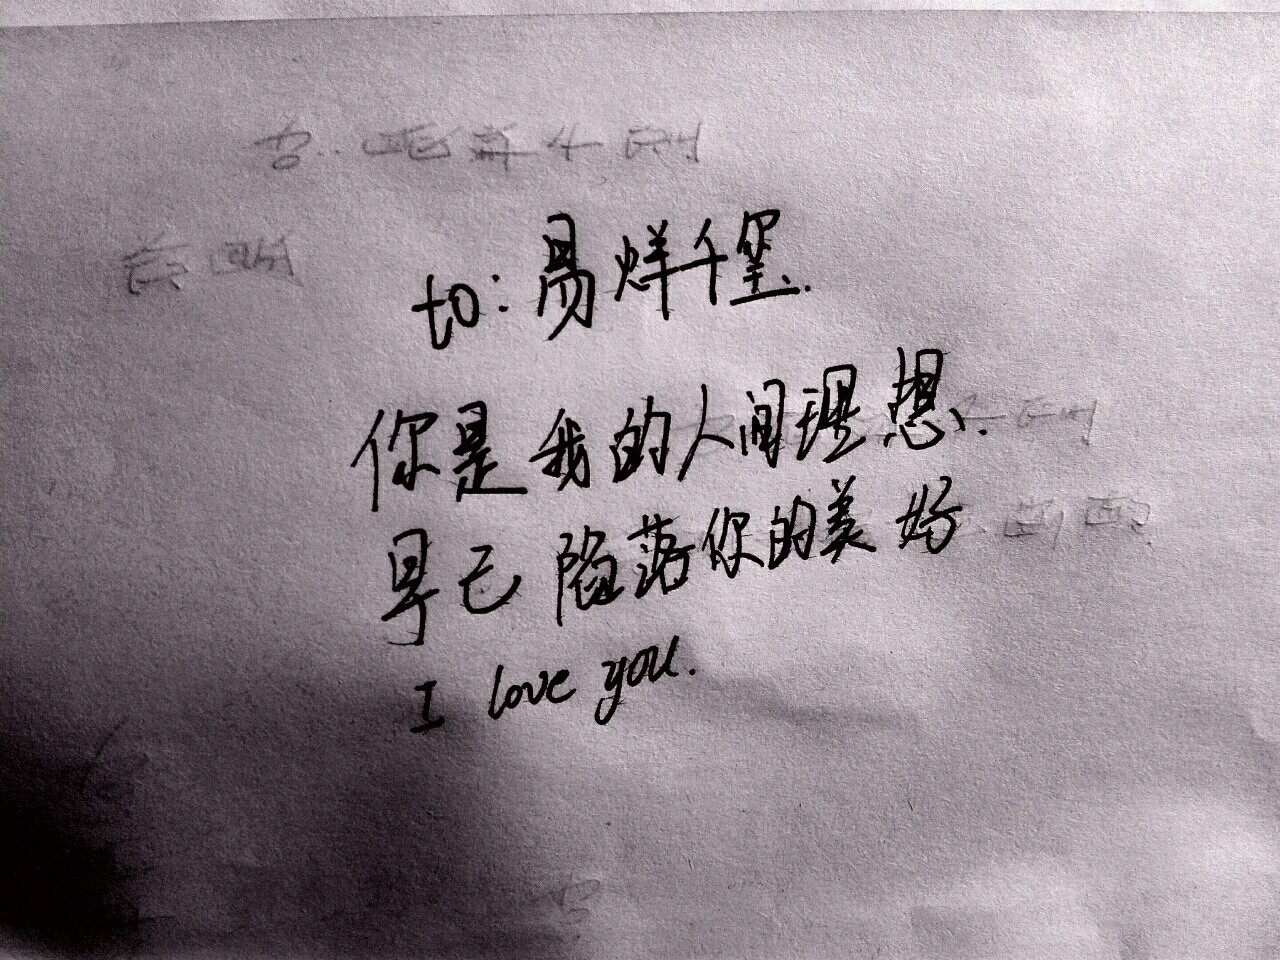 to: 易烊千玺.
你是我的人间理想.
早已陷落你的美好
I love you.